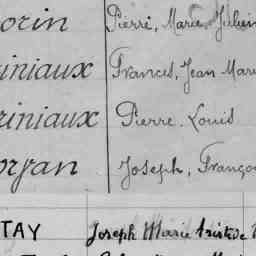 orin Pierre, Marie Julien
iniaux Francis, Jean Mari
riniaux Pierre. Louis
oryan Joseph, Franço
TAY Joseph Marie Aristide